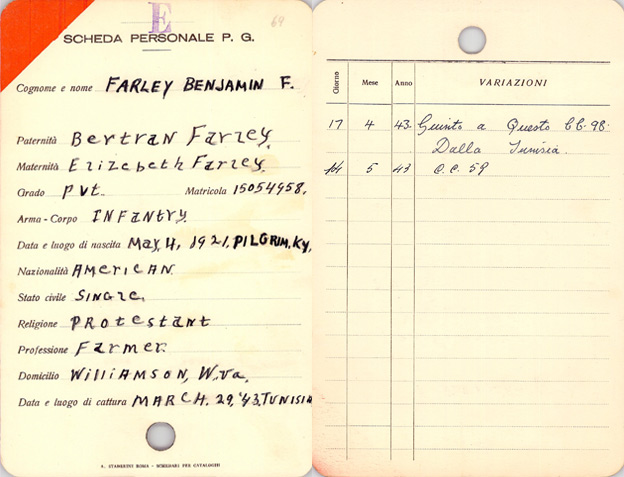 E
69
SCHEDA PERSONALE P. G.
Cognome e nome FARLEY BENJAMIN F.
Paternità Bertran Farley.
Maternità Elizebeth Farley.
Grado Pvt. Matricola 15054958.
Arma - Corpo INFantry.
Data e luogo di nascita May, 4, 1921, PILGRIM, Ky,
Nazionalità AMERICAN.
Stato civile SINGLE.
Religione PROtestant
Professione Farmer.
Domicilio WILLIAMSON, W.va,
Data e luogo di cattura MARCH. 29, '43, TUNISIA
A. STAMPERINI ROMA - SCHEDARI PER CATALOGHI
Giorno Mese Anno VARIAZIONI
17 4 43. Giunto a Questo CC. 98.
Dalla Tunisia.
14 5 43 C.C. 59